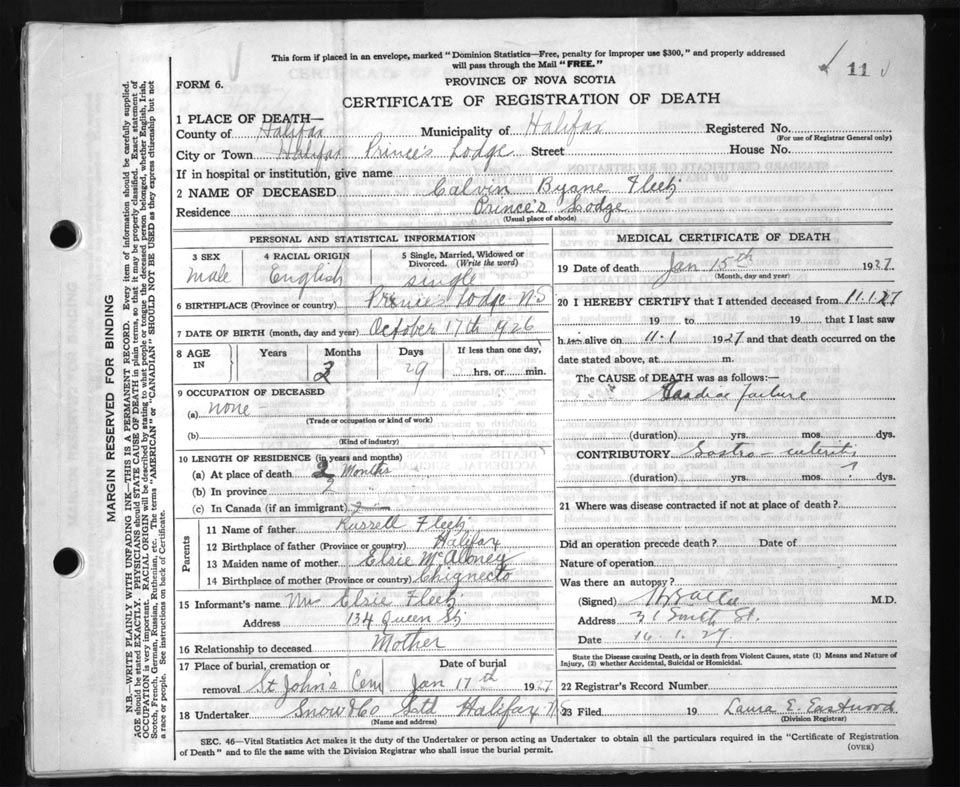 This form if placed in an envelope, marked "Dominion Statistics—Free, penalty for improper use $300," and properly addressed
will pass through the Mail "FREE."
11
FORM 6.
PROVINCE OF NOVA SCOTIA
CERTIFICATE OF REGISTRATION OF DEATH
1 PLACE OF DEATH—
County of Halifax Municipality of Halifax Registered No.
(For use of Registrar General only)
City or Town Halifax Prince's Lodge Street House No.
If in hospital or institution, give name
2 NAME OF DECEASED Calvin Fleet
Residence Prince's Lodge
(Usual place of abode)
PERSONAL AND STATISTICAL INFORMATION
3 SEX 4 RACIAL ORIGIN 5 Single, Married, Widowed or
Divorced. (Write the word)
male English single
6 BIRTHPLACE (Province or country) Prince's Lodge N S
7 DATE OF BIRTH (month, day and year) October 17th 1926
8 AGE IN Years Months Days If less than one day,
29 hrs. or min.
9 OCCUPATION OF DECEASED
(a) none
(Trade or occupation or kind of work)
(b)
(Kind of industry)
10 LENGTH OF RESIDENCE (in years and months)
(a) At place of death 2 Months
(b) In province
(c) In Canada (if an immigrant)
Parents
11 Name of father Russell Fleet
12 Birthplace of father (Province or country) Halifax
13 Maiden name of mother Elsie McAloney
14 Birthplace of mother (Province or country) Chignecto
15 Informant's name Mrs Elsie Fleet
Address 134 Queen St
16 Relationship to deceased Mother
17 Place of burial, cremation or Date of burial
removal St John's Cem Jan 17th 1927
18 Undertaker Snow & Co Ltd Halifax N S
(Name and address)
MEDICAL CERTIFICATE OF DEATH
19 Date of death Jan 15th 1927
(Month, day and year)
20 I HEREBY CERTIFY that I attended deceased from 11.1.27
19 to 19 that I last saw
h alive on 11-1 1927 and that death occurred on the
date stated above, at m.
The CAUSE of DEATH was as follows:—
Cardiac failure
(duration) yrs. mos. dys.
CONTRIBUTORY Gastro-enteritis
(duration) yrs. mos. ? dys.
21 Where was disease contracted if not at place of death?
Did an operation precede death? Date of
Nature of operation
Was there an autopsy?
(Signed) M.D.
Address 31 Smith St.
Date 16.1.27.
State the Disease causing Death, or in death from Violent Causes, state (1) Means and Nature of
Injury, (2) whether Accidental, Suicidal or Homicidal.
22 Registrar's Record Number
23 Filed 19 Laura E. Eastwood
(Division Registrar)
SEC. 46—Vital Statistics Act makes it the duty of the Undertaker or person acting as Undertaker to obtain all the particulars required in the "Certificate of Registration
of Death" and to file the same with the Division Registrar who shall issue the burial permit.
(OVER)
MARGIN RESERVED FOR BINDING
N.B.—WRITE PLAINLY WITH UNFADING INK—THIS IS A PERMANENT RECORD. Every item of information should be carefully supplied.
AGE should be stated EXACTLY. PHYSICIANS should STATE CAUSE OF DEATH in plain terms, so that it may be properly classified. Exact statement of
OCCUPATION is very important. RACIAL ORIGIN will be described by stating to what people or tongue the deceased person belonged, whether English, Irish,
Scotch, French, German, Russian, Ruthenian, etc. The terms "AMERICAN" or "CANADIAN" SHOULD NOT BE USED as they express citizenship but not
a race or people. See instructions on back of Certificate.